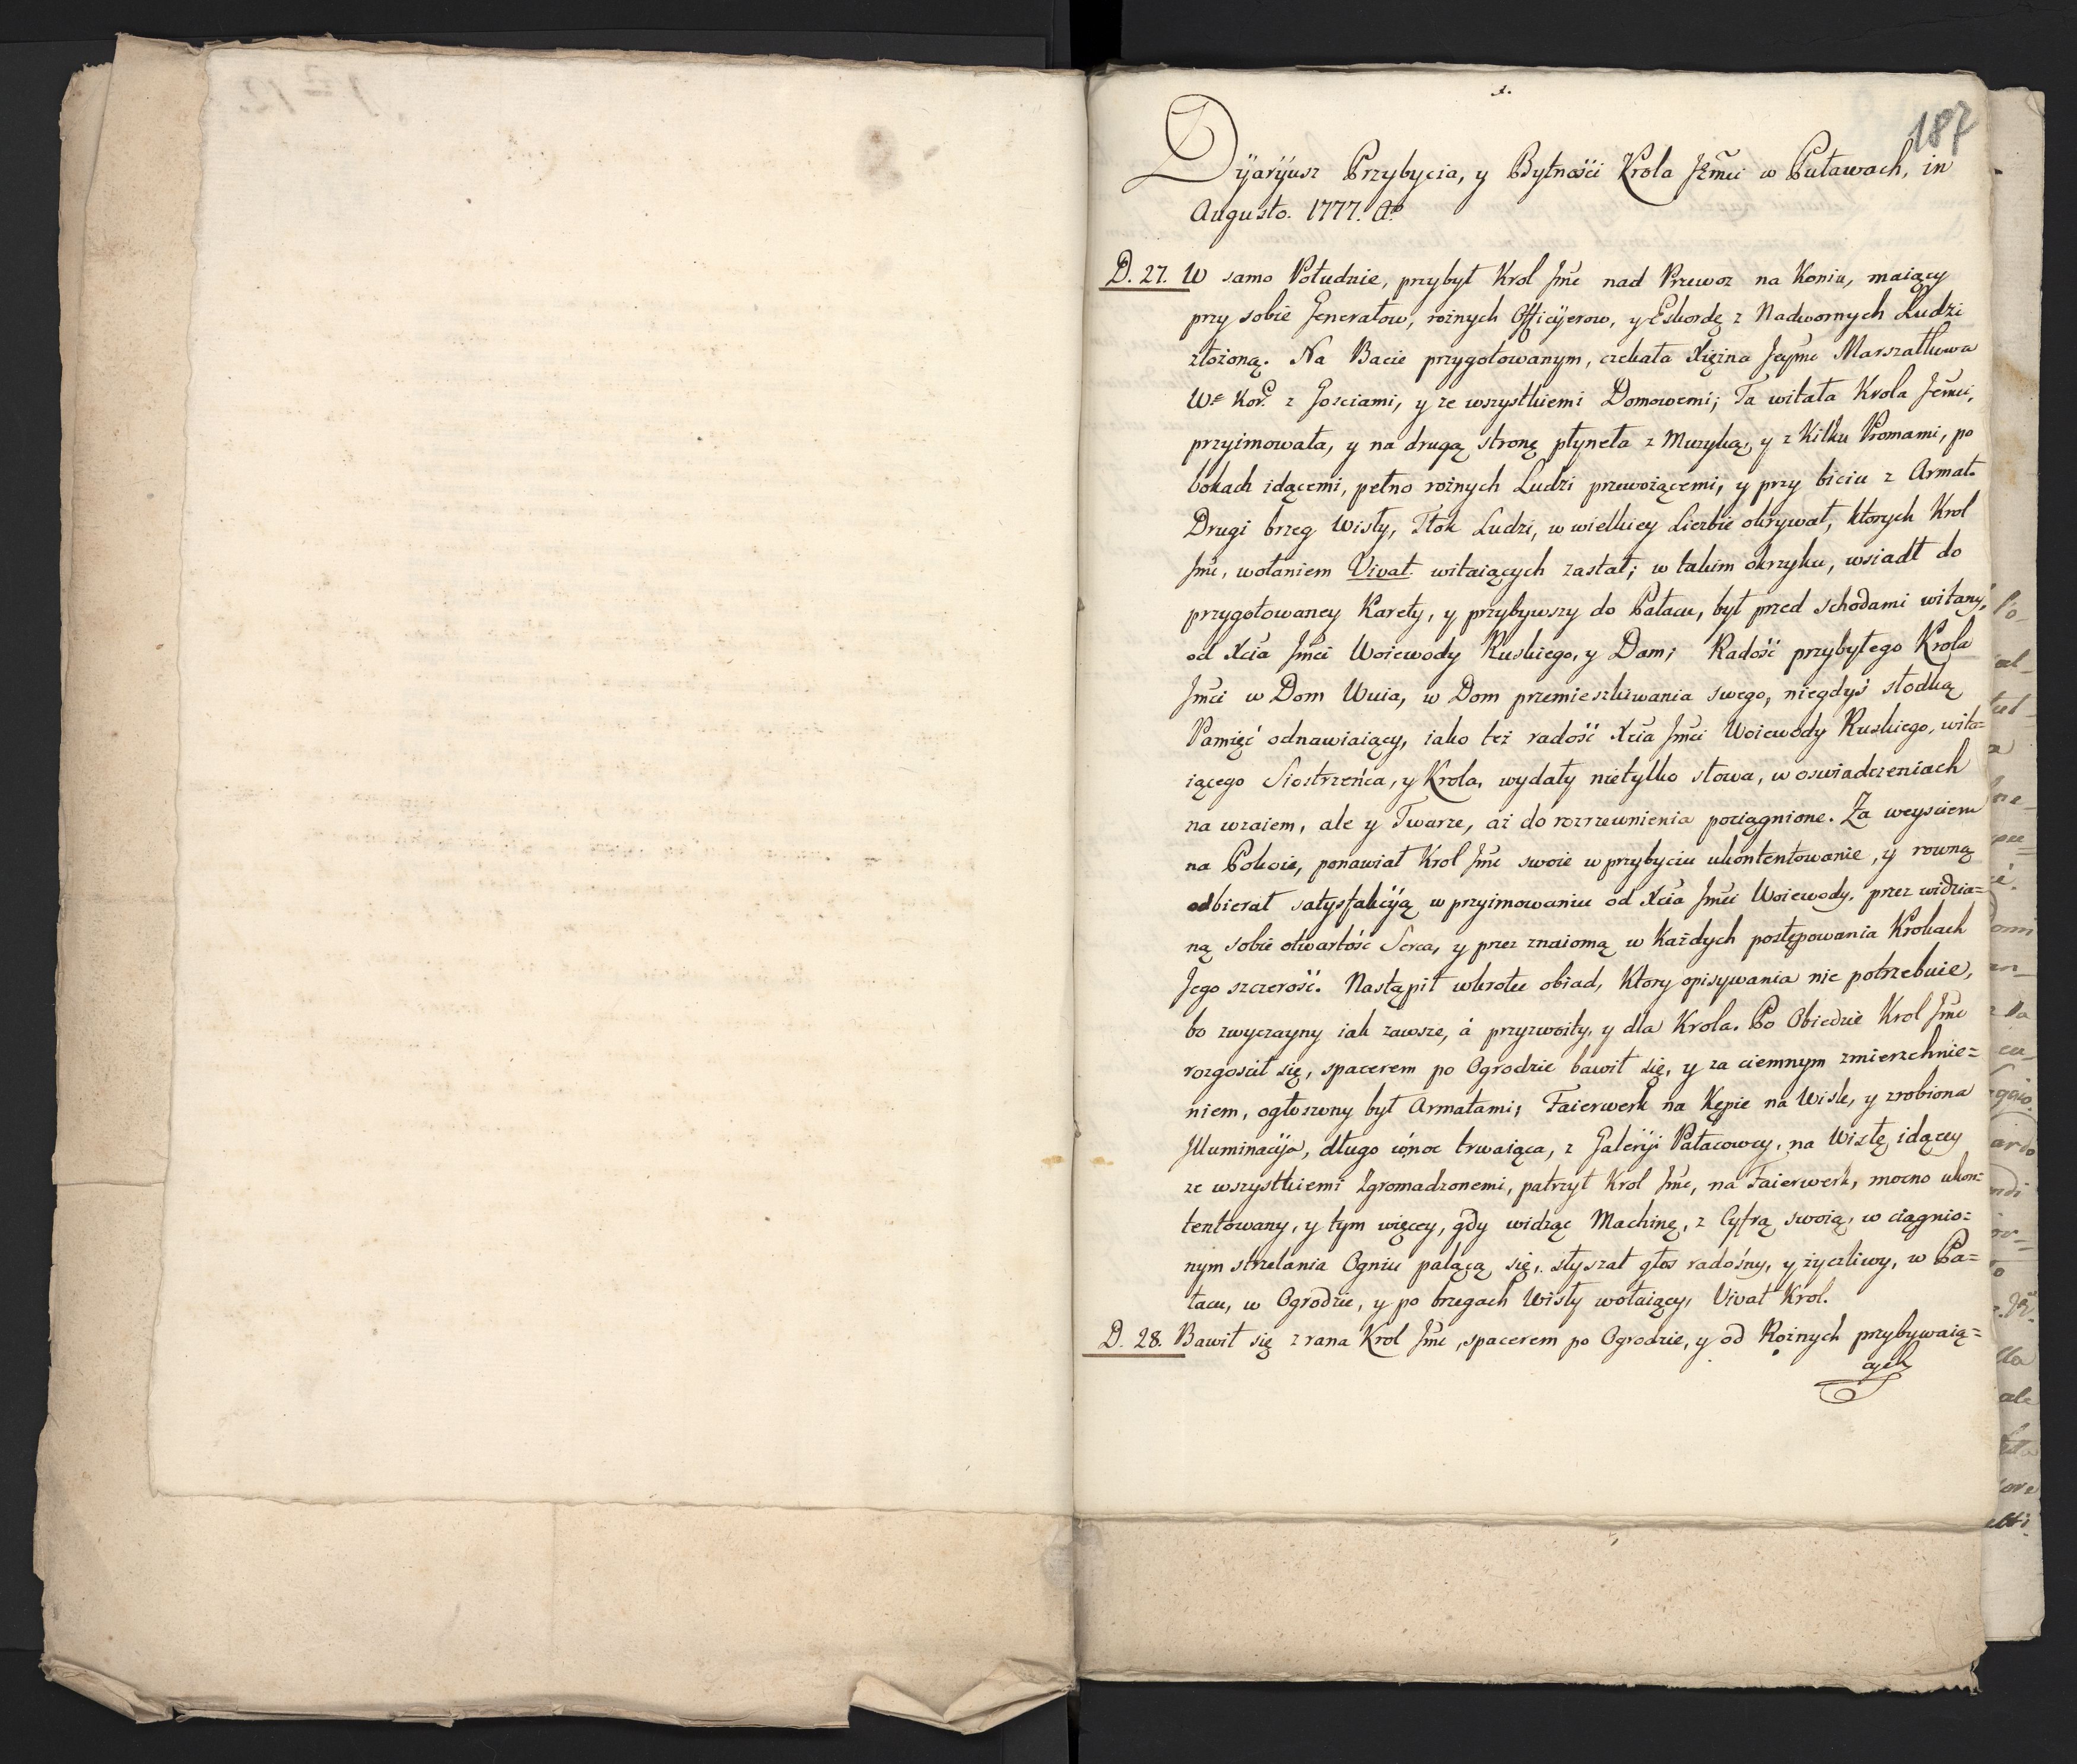 1.
187
Dÿarÿusz Przybycia, y Bytnosći Krola JEmći w Puławach, in
Augusto. 1777. Ao
D. 27. W samo Południe, przybył Krol Jmć nad Przewoz na Koniu, maiący
przy sobie Jenerałow, rożnych Officÿerow, y Eskordę z Nadwornych Ludzi
złożoną. Na Bacie przygotowanym, czekała Xiężna Jeymć Marszałkowa
W. Kor. z Gosciami, y ze wszystkiemi Domowemi; Ta witała Krola Jemći,
przyimowała, y na drugą stronę płyneła z Muzyką, y z Kilku Promami, po
bokach idącemi, pełno rożnych Ludzi przewożącemi, y przy biciu z Armat.
Drugi brzeg Wisły, Tłok Ludzi, w wielkiey Liczbie okrywał, ktorych Krol
Jmć, wołaniem Vivat witaiących zastał; w takim okrzyku, wsiadł do
przygotowaney Karety, y przybywszy do Pałacu, był przed schodami witany,
od Xcia Jmći Woiewody Ruskiego, y Dam; Radość przybyłego Krola
Jmći w Dom Wuia, w Dom przemieszkiwania swego, niegdyś słodką
Pamięć odnawiaiący, iako też radość Xcia Jmći Woiewody Ruskiego, wita=
iącego Siostrzeńca, y Krola, wydały nietylko słowa, w oswiadczeniach
na wzaiem, ale y Twarze, aż do rozrzewnienia pociągnione. Za weysciem
na Pokoie, ponawiał Krol Jmć swoie w przybyciu ukontentowanie, y rowną
odbierał satysfakcÿą w przyimowaniu od Xcia Jmći Woiewody, przez widzia=
ną sobie otwartość Serca, y przez znaiomą w Każdych postępowania Krokach
Jego szczerość. Nastąpił wkrotce obiad, Ktory opisywania nie potrzebuie,
bo zwyczayny iak zawsze, á przyzwoity, y dla Krola. Po Obiedzie Krol Jmć
rozgoscił się, spacerem po Ogrodzie bawił się, y za ciemnym zmierzchnie=
niem, ogłoszony był Armatami; Faierwerk na Kępie na Wisle, y zrobiona
Jlluminacÿa, długo w noc trwaiąca, z Galerÿi Pałacowey, na Wisłę idącey
ze wszystkiemi Zgromadzonemi, patrzył Krol Jmć, na Faierwerk, mocno ukon=
tentowany, y tym więcey, gdy widząc Machinę, z Cyfrą swoią, w ciągnio=
nym strzelania Ogniu palącą się, słyszał głos radośny, y życzliwy, w Pa=
łacu, w Ogrodzie, y po brzegach Wisły wołaiący, Vivat Krol.
D. 28. Bawił się z rana Krol Jmć, spacerem po Ogrodzie, y od Rożnych przybywaią=
cych